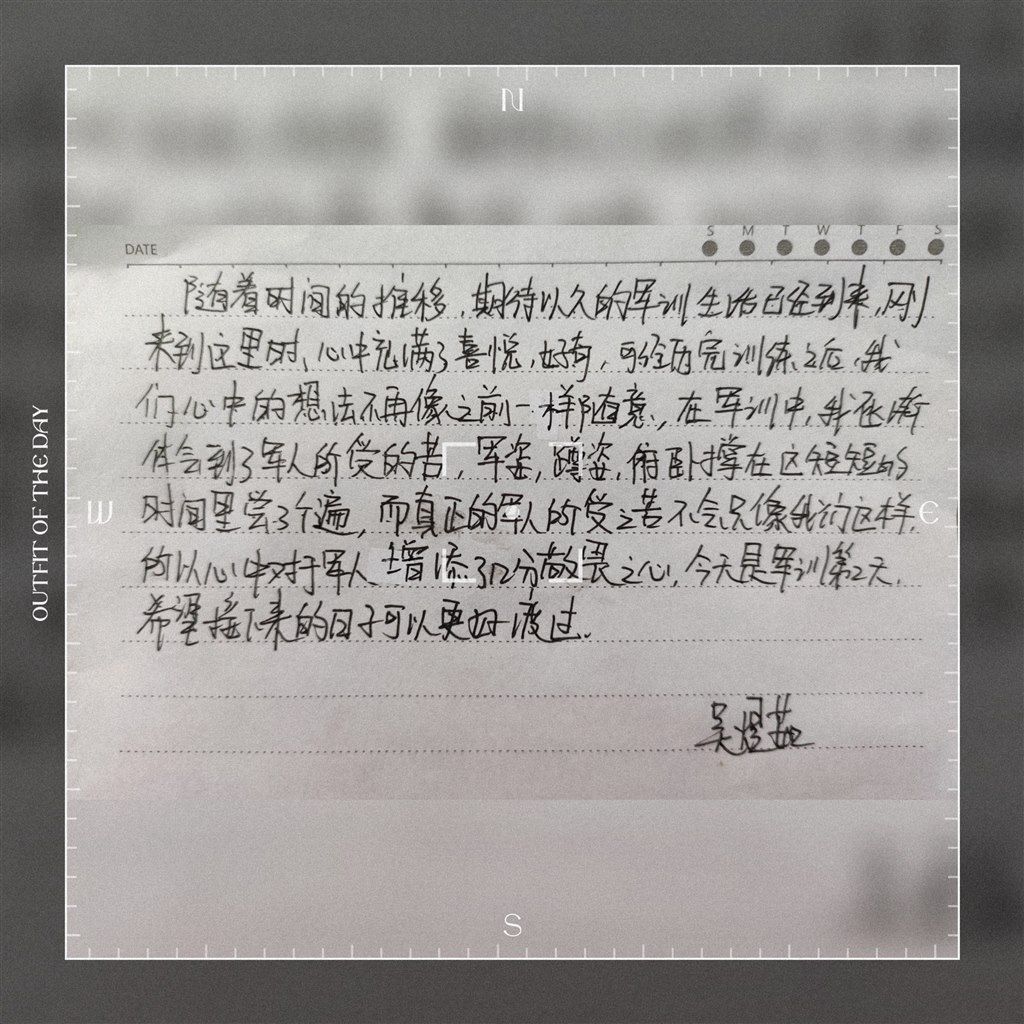 N
S M T W T F S
DATE
随着时间的推移,期待以久的军训生活已经到来,刚
来到这里时,心中充满了喜悦,好奇,可经历完训练之后,我
们心中的想法不再像之前一样随意,在军训中,我逐渐
体会到了军人所受的苦,军姿,蹲姿,俯卧撑在这短短的
时间里尝了个遍,而真正的军人所受之苦不会只像我们这样,
所以心中对于军人增添了几分敬畏之心,今天是军训第2天,
希望接下来的日子可以更好渡过.
吴煜茹
OUTFIT OF THE DAY
W
E
S